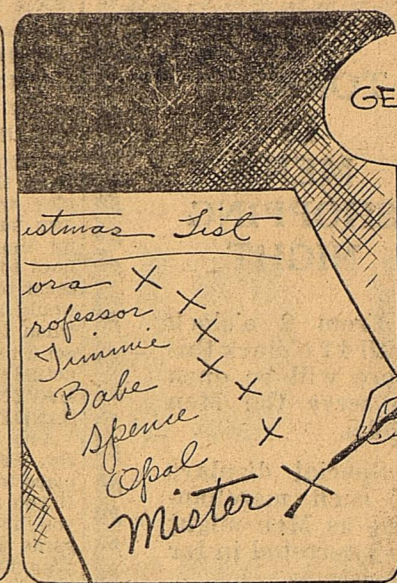 GE
istmas List
ora X
rofessor X
Jimmie X
Babe X
Spence X
Opal X
Mister X